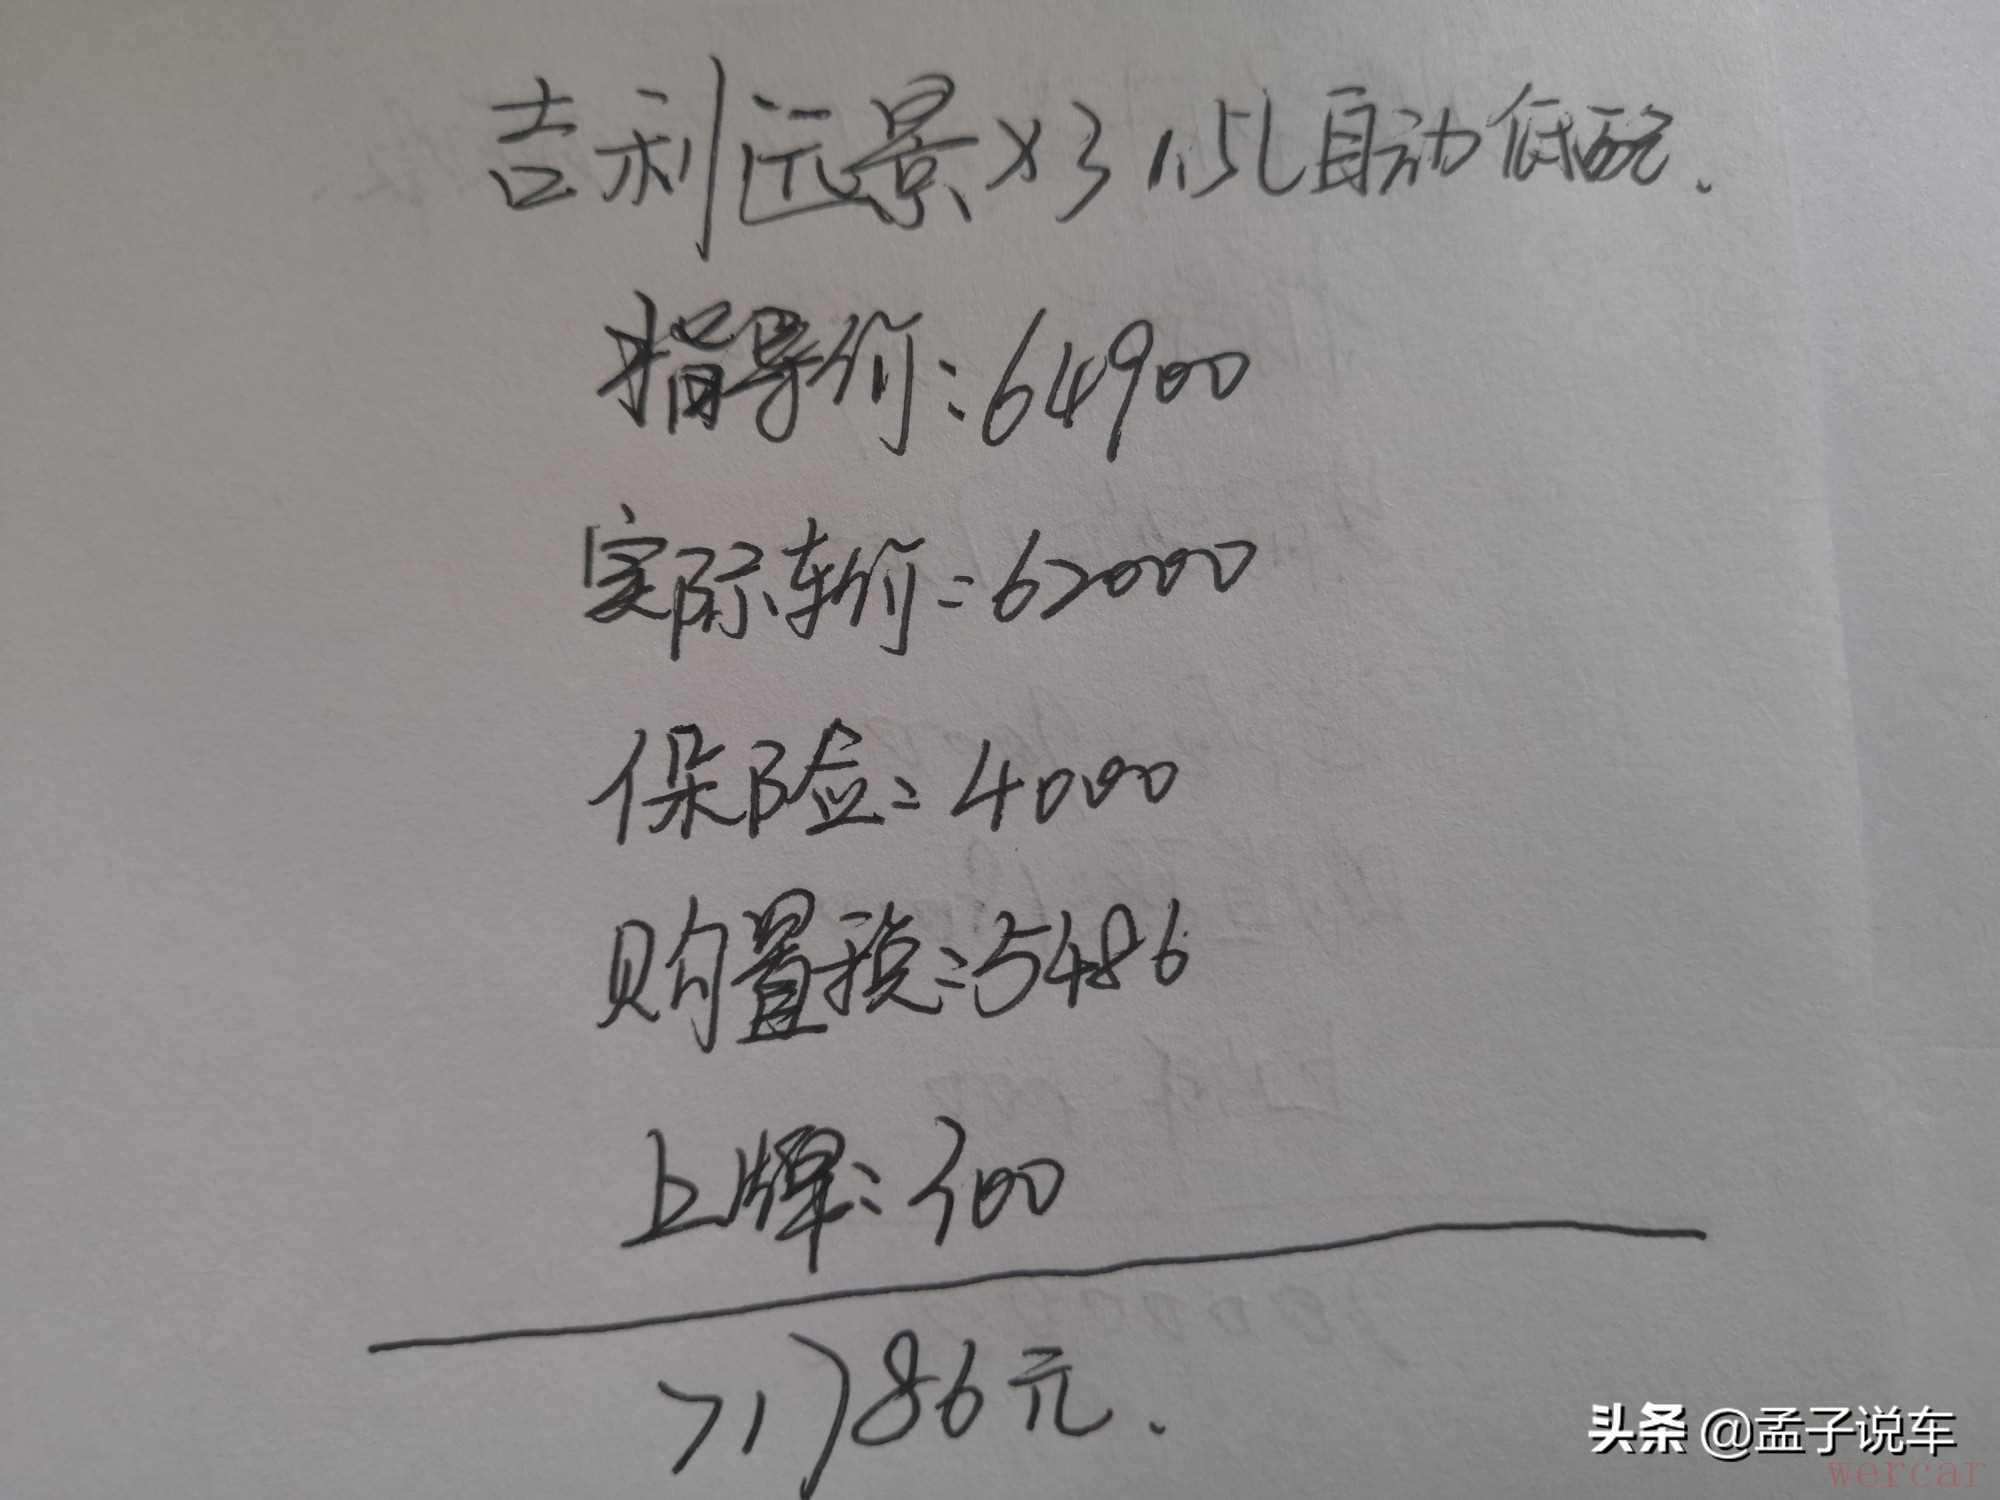 吉利远景X3 1.5L自动低配.
指导价:64900
实际车价:62000
保险:4000
购置税:5486
上牌:300
71786元.
头条 @孟子说车
wercar